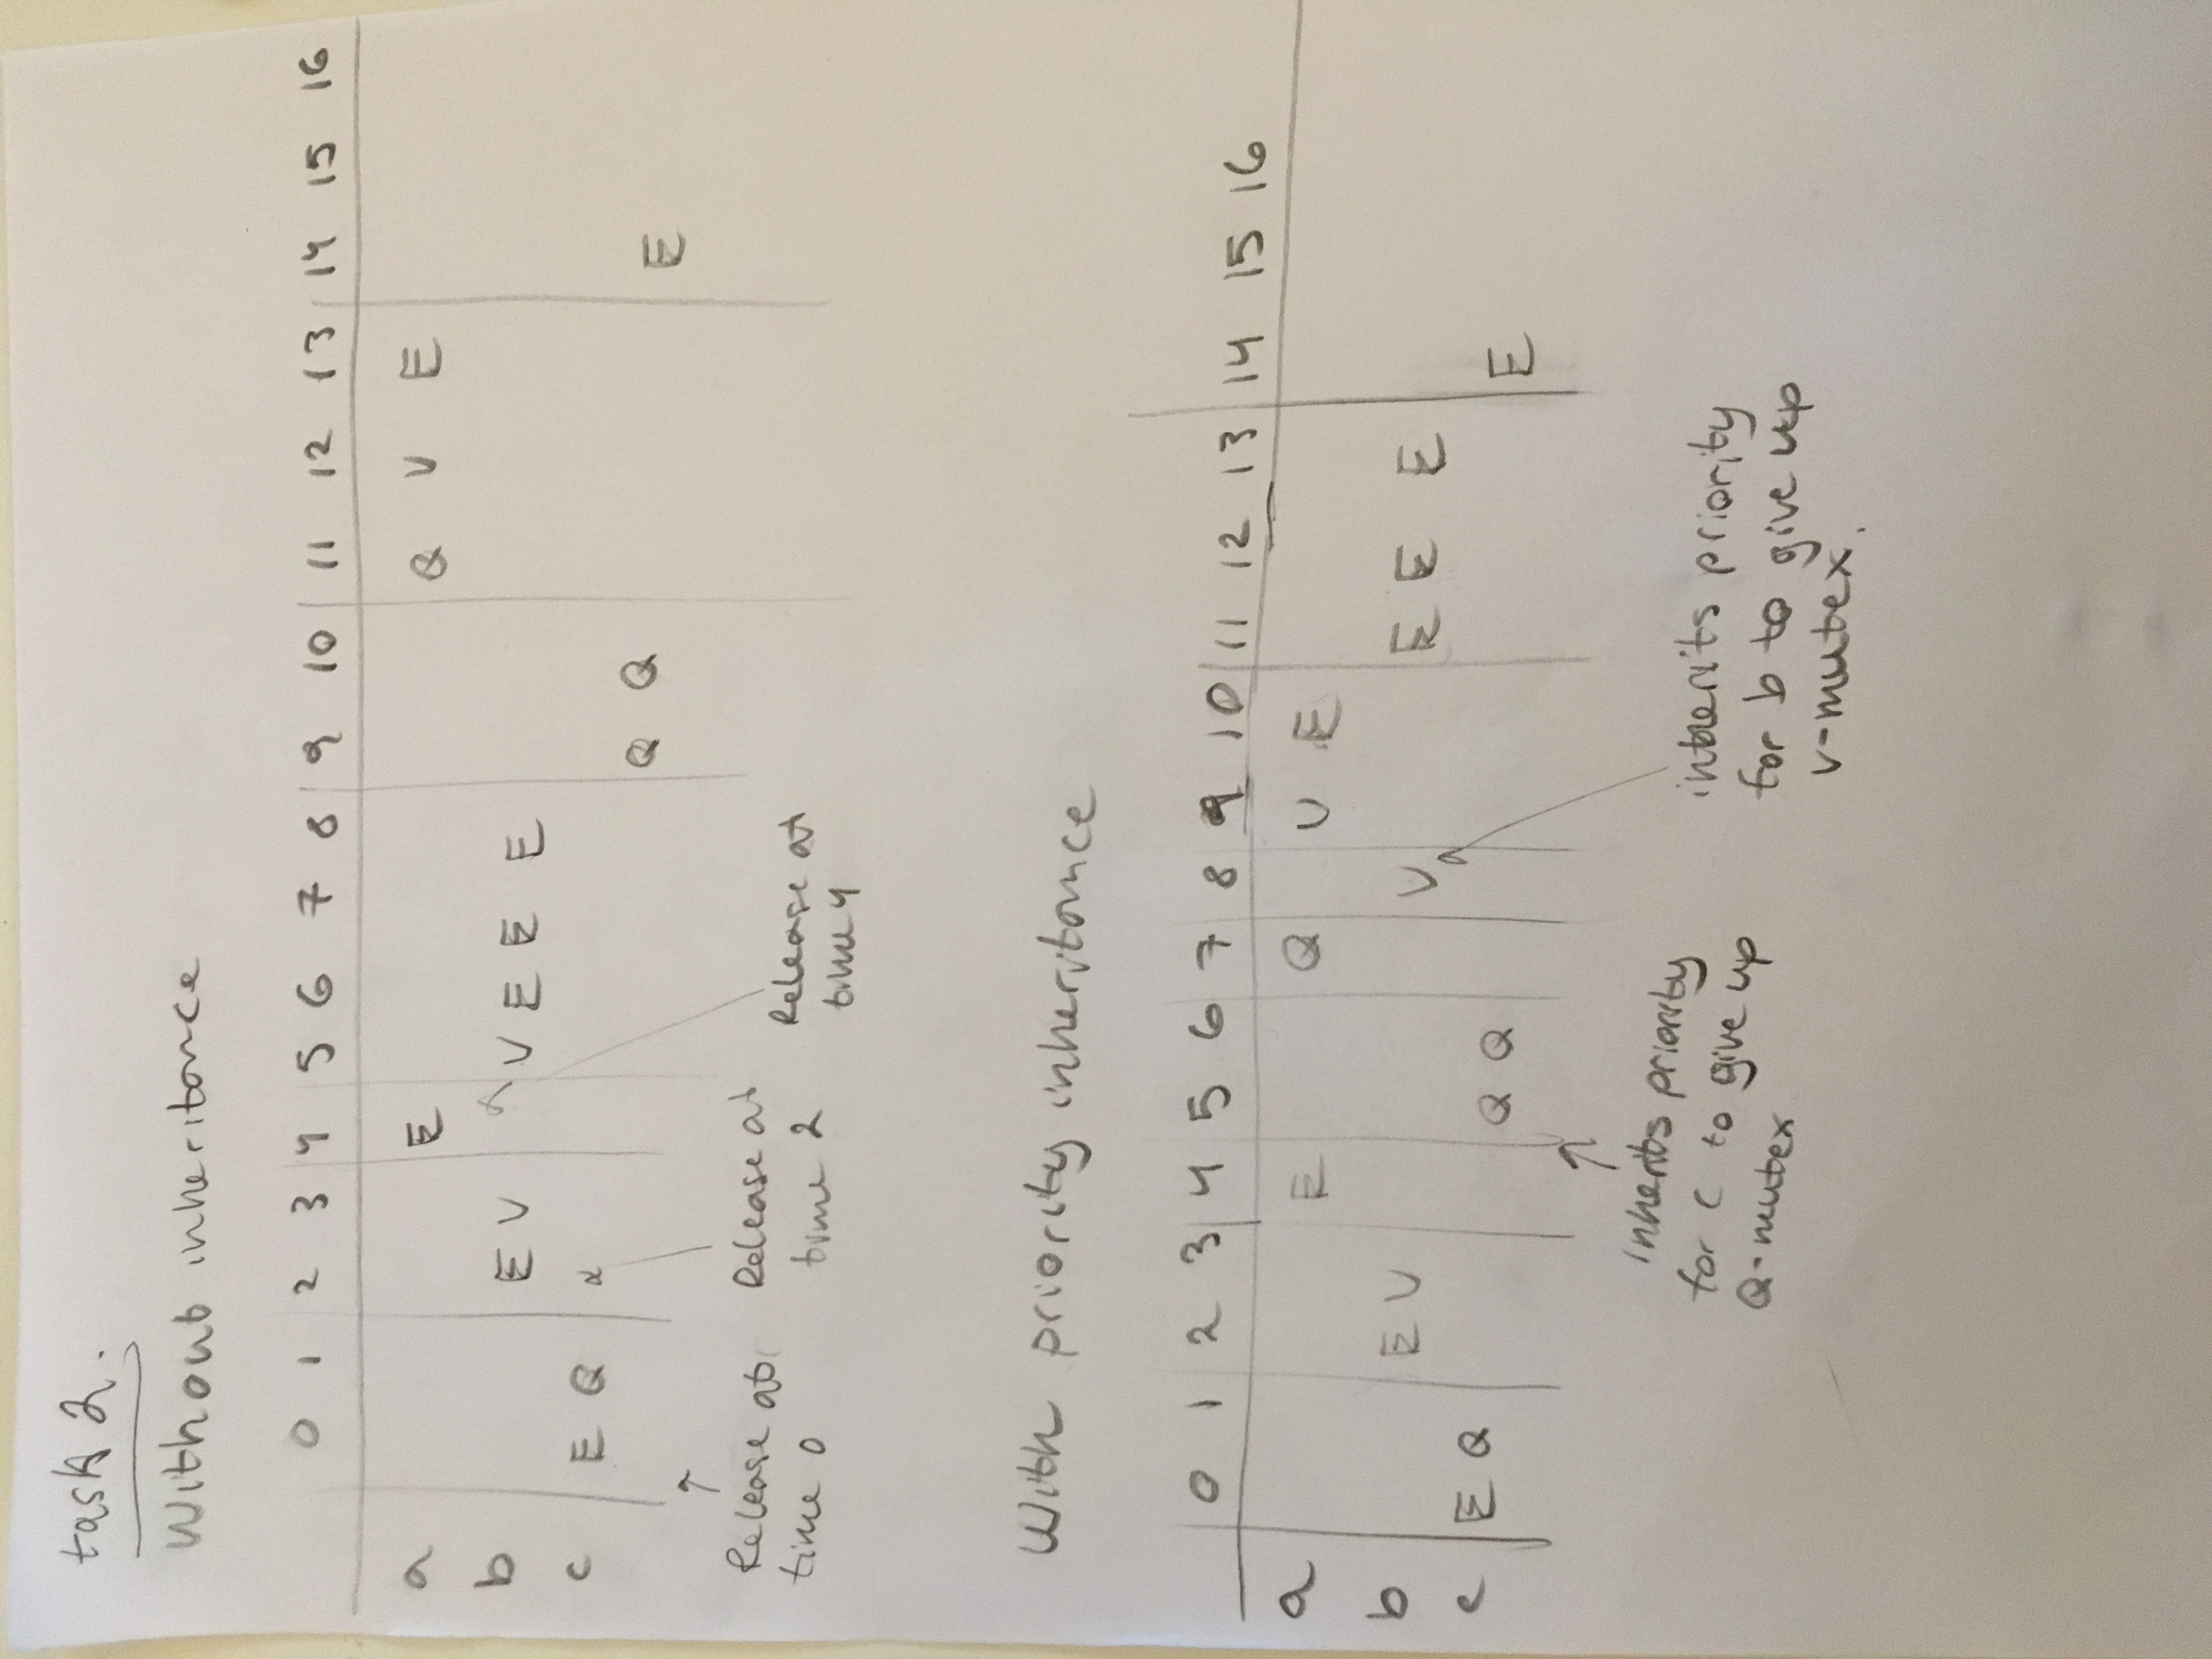 task 2.
Without inheritance
0 1 2 3 4 5 6 7 8 9 10 11 12 13 14 15 16
a E Q V E
b E V V E E E
c E Q Q Q E
Release at time 0
Release at time 2
Release at time 4
With priority inheritance
0 1 2 3 4 5 6 7 8 9 10 11 12 13 14 15 16
a E Q V E
b E V V E E E
c E Q Q Q E
Inherits priority
for c to give up
Q-mutex
inherits priority
for b to give up
v-mutex.